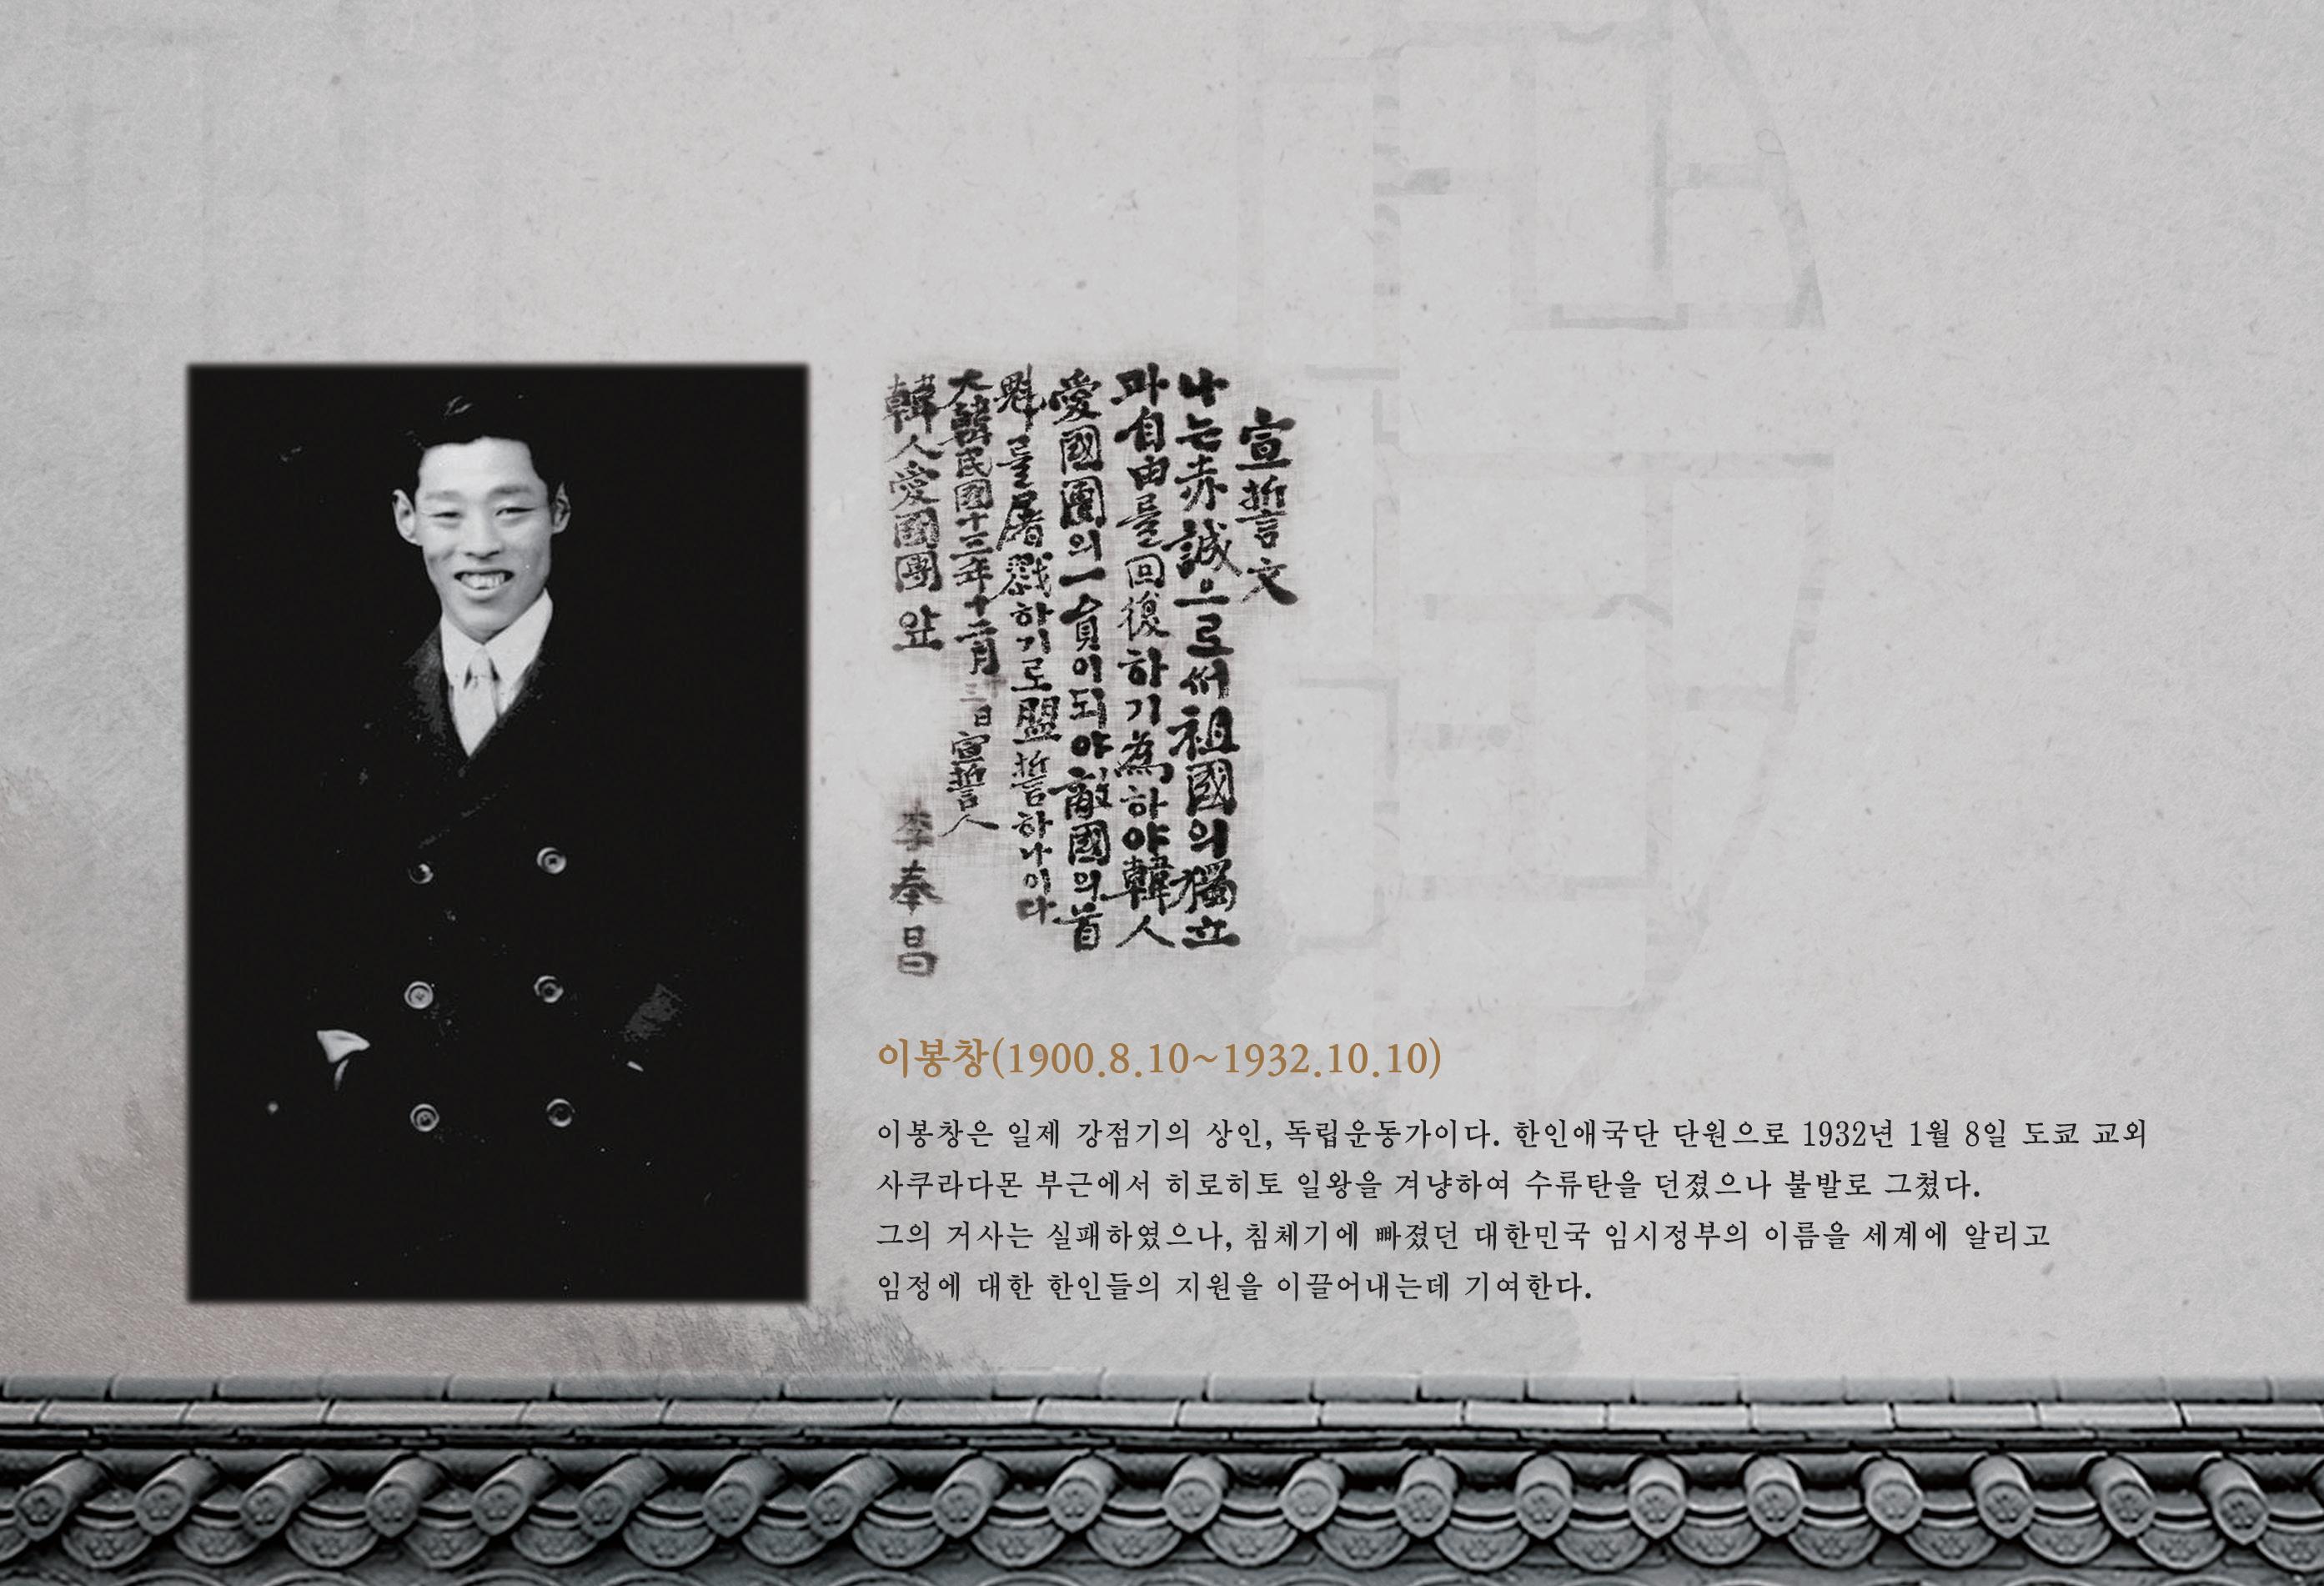 宣誓文
나는赤誠으로써祖國의獨立
과自由를回復하기爲하야韓人
愛國團의一員이되야敵國의首
魁를屠戮하기로盟誓하나이다
大韓民國十三年十二月 日 宣誓人
韓人愛國團앞 李奉昌
이봉창(1900.8.10~1932.10.10)
이봉창은 일제 강점기의 상인, 독립운동가이다. 한인애국단 단원으로 1932년 1월 8일 도쿄 교외
사쿠라다몬 부근에서 히로히토 일왕을 겨냥하여 수류탄을 던졌으나 불발로 그쳤다.
그의 거사는 실패하였으나, 침체기에 빠졌던 대한민국 임시정부의 이름을 세계에 알리고
임정에 대한 한인들의 지원을 이끌어내는데 기여한다.